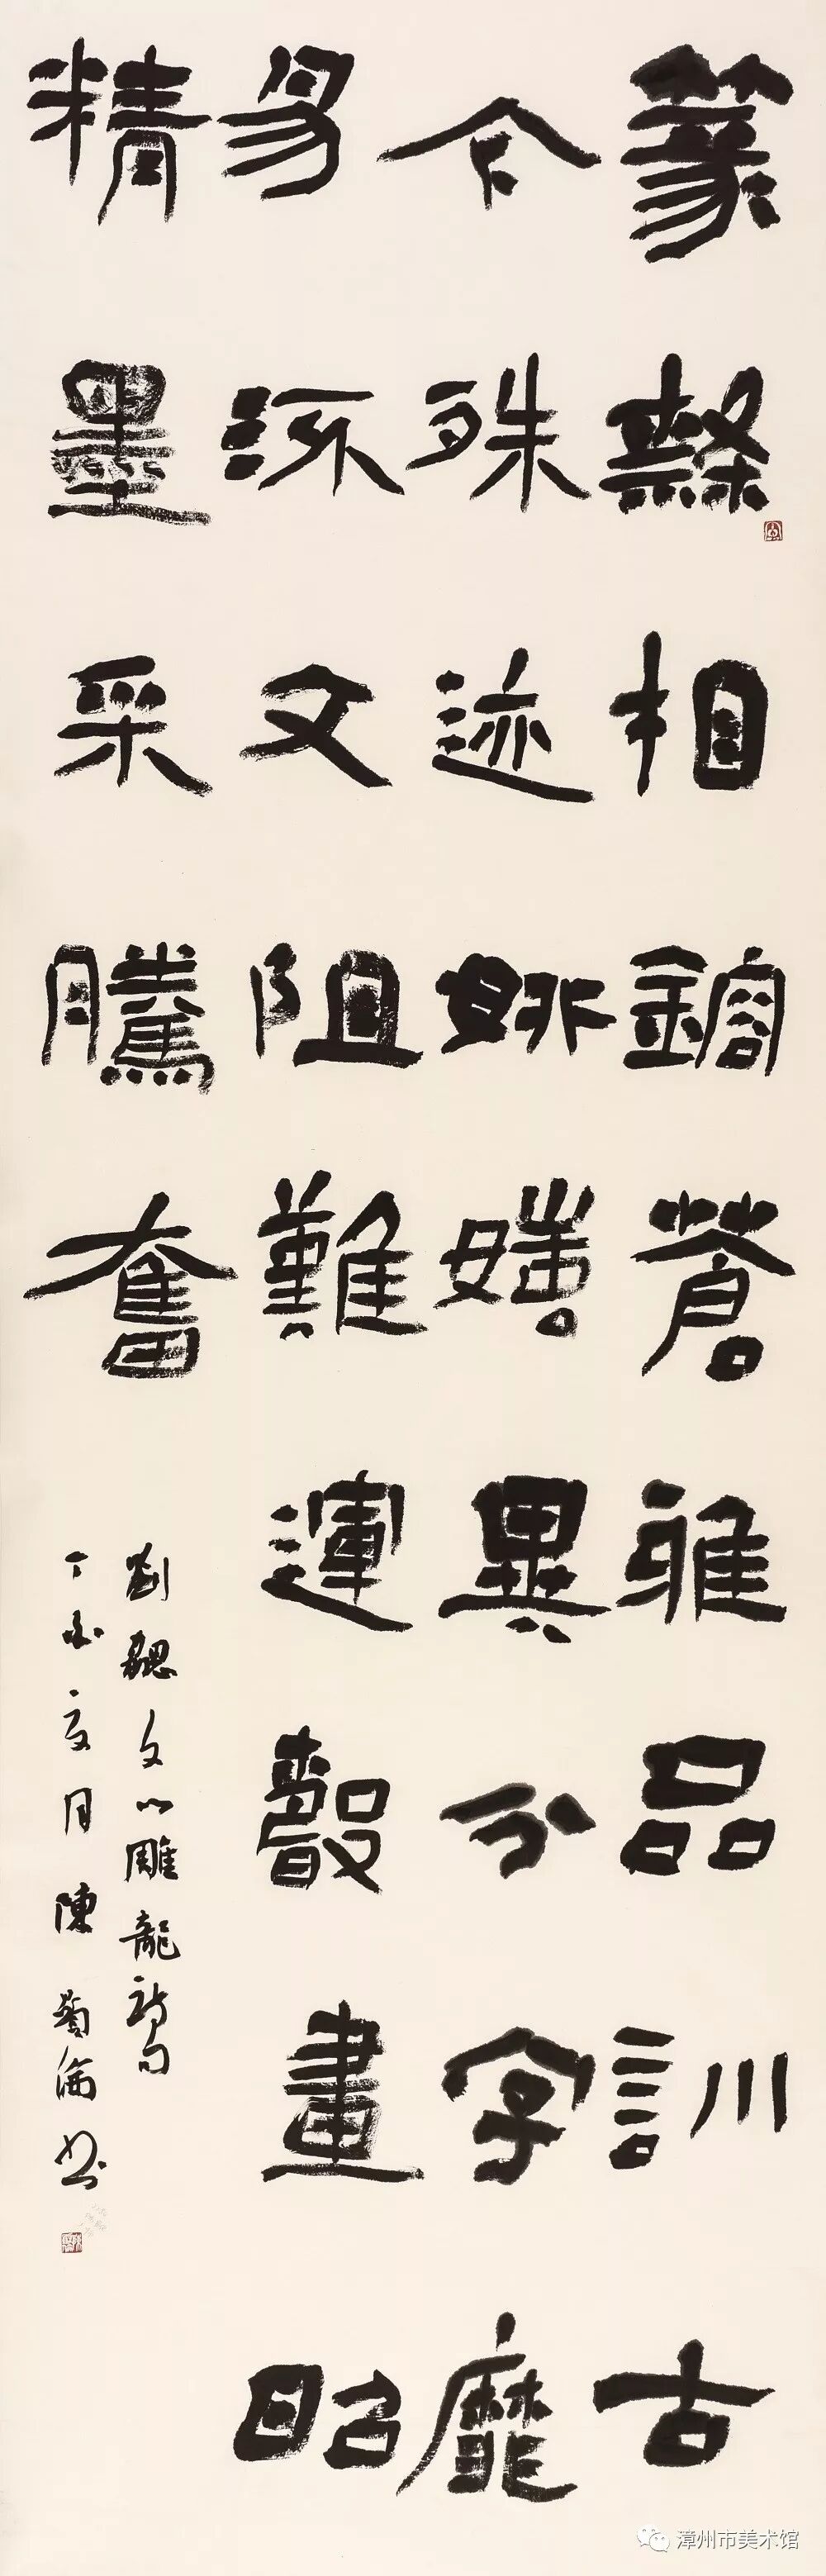 篆隸相鎔蒼雅品訓古
今殊迹妍媸異分字靡
易流文阻難運聲畫昭
精墨采騰奮
劉勰文心雕龍詩句
丁酉夏月陳菊書
漳州市美术馆